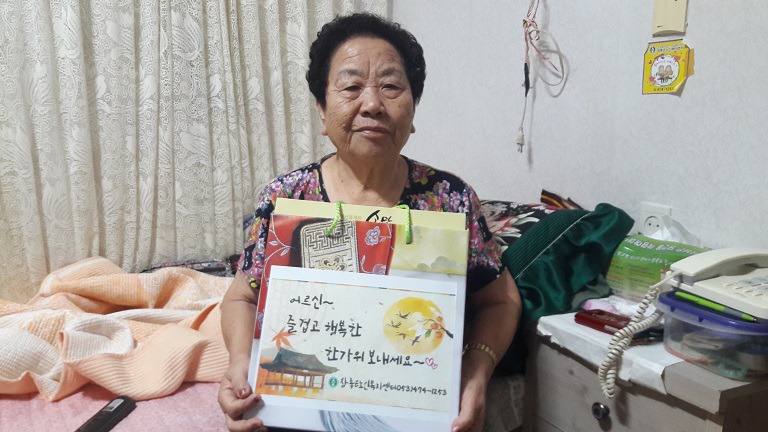 어르신~
즐겁고 행복한
한가위 보내세요~♡
053)474-1253